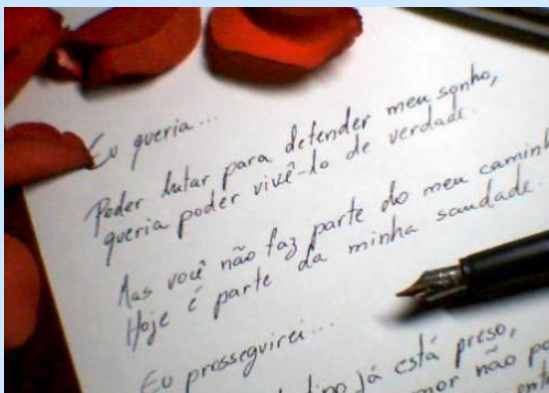 Eu queria...
Poder lutar para defender meu sonho,
queria poder vivê-lo de verdade.
Mas você não faz parte do meu caminh
Hoje é parte da minha saudade.
Eu prosseguirei...
já está preso,
mor não po